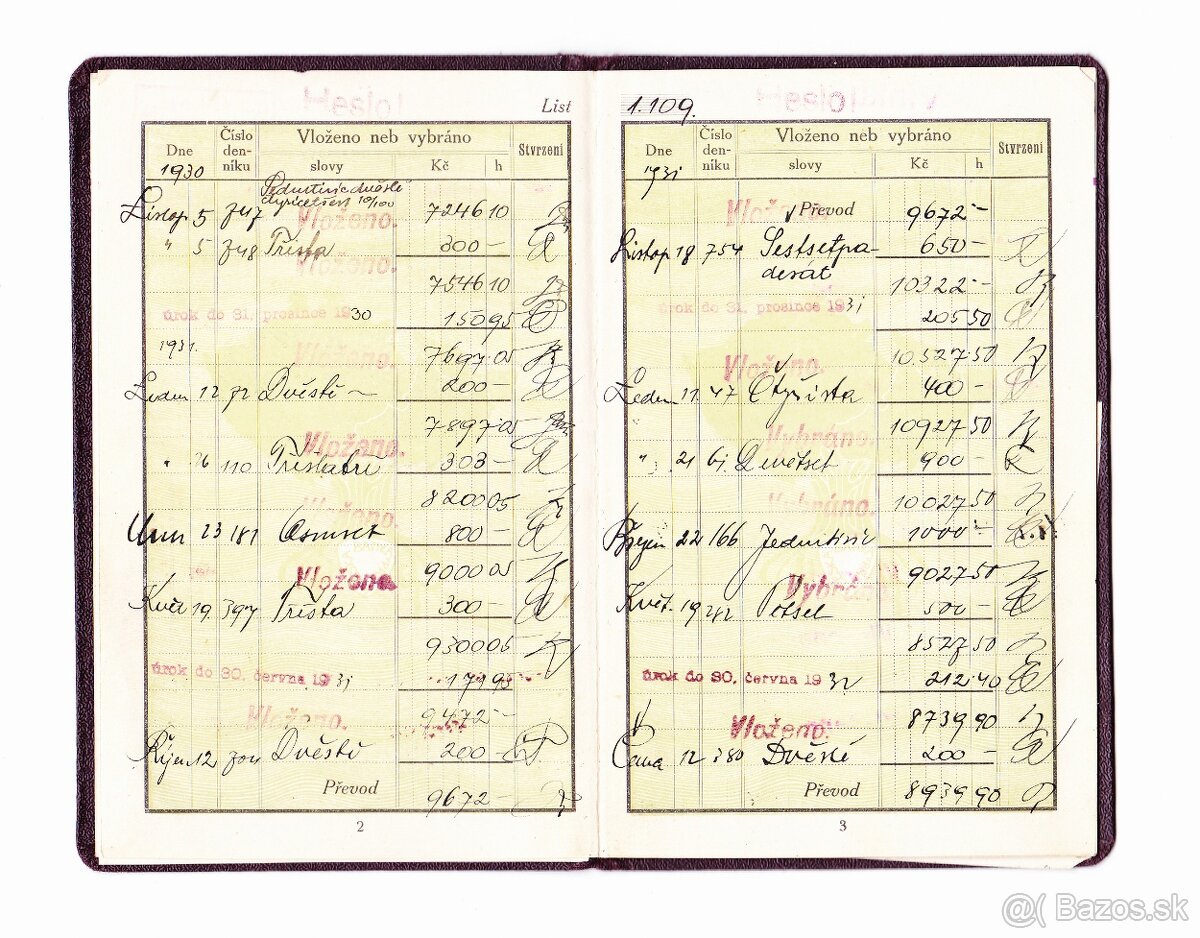 List
Dne
Číslo den-níku
Vloženo neb vybráno
slovy
Kč
h
Stvrzení
1930
Listop. 5 747 Sedmtisícdvěstě čtyřicetšest 10/100 Vloženo. 7246 10
" 5 748 Třista Vloženo. 300 —
7546 10
úrok do 31. prosince 1930 150 95
1931. Vloženo. 7697 05
Leden 12 72 Dvěstě — 200 —
Vloženo. 7897 05
" 26 110 Třistatři 303 —
Vloženo. 8200 05
Únor 23 181 Osmset 800 —
Vloženo. 9000 05
Květ 19. 397 Třista 300 —
9300 05
úrok do 30. června 1931 171 95
Vloženo. 9472 —
Říjen 12 704 Dvěstě 200 —
Převod 9672 —
2
1.109.
Dne
Číslo den-níku
Vloženo neb vybráno
slovy
Kč
h
Stvrzení
1931
Vloženo. Převod 9672 —
Listop 18 754 Šestsetpa- 650 —
desát 10322 —
úrok do 31. prosince 1931 205 50
Vloženo. 10.527 50
Leden 11. 47 Čtyřista 400 —
Vybráno. 10927 50
" 21 61. Devětset 900 —
Vybráno. 10027 50
Březen 22 166 Jedentisíc 1000 —
Vybráno 9027 50
Květ. 19 282 Pětset 500 —
8527 50
úrok do 30. června 1932 212 40
Vloženo. 8739 90
12 380 Dvěstě 200 —
Převod 8939 90
3
@( Bazos.sk